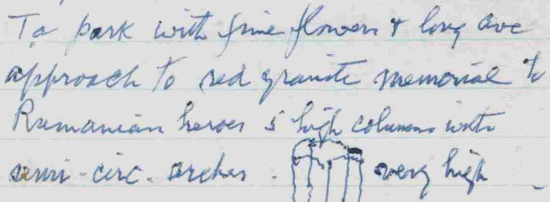 To park with fine flowers & long ave
approach to red granite memorial to
Rumanian heroes 5 high columns with
semi-circ. arches. very high